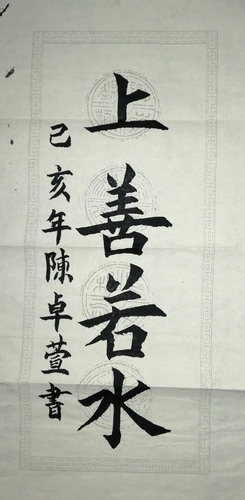 上善若水
己亥年陳卓萱書